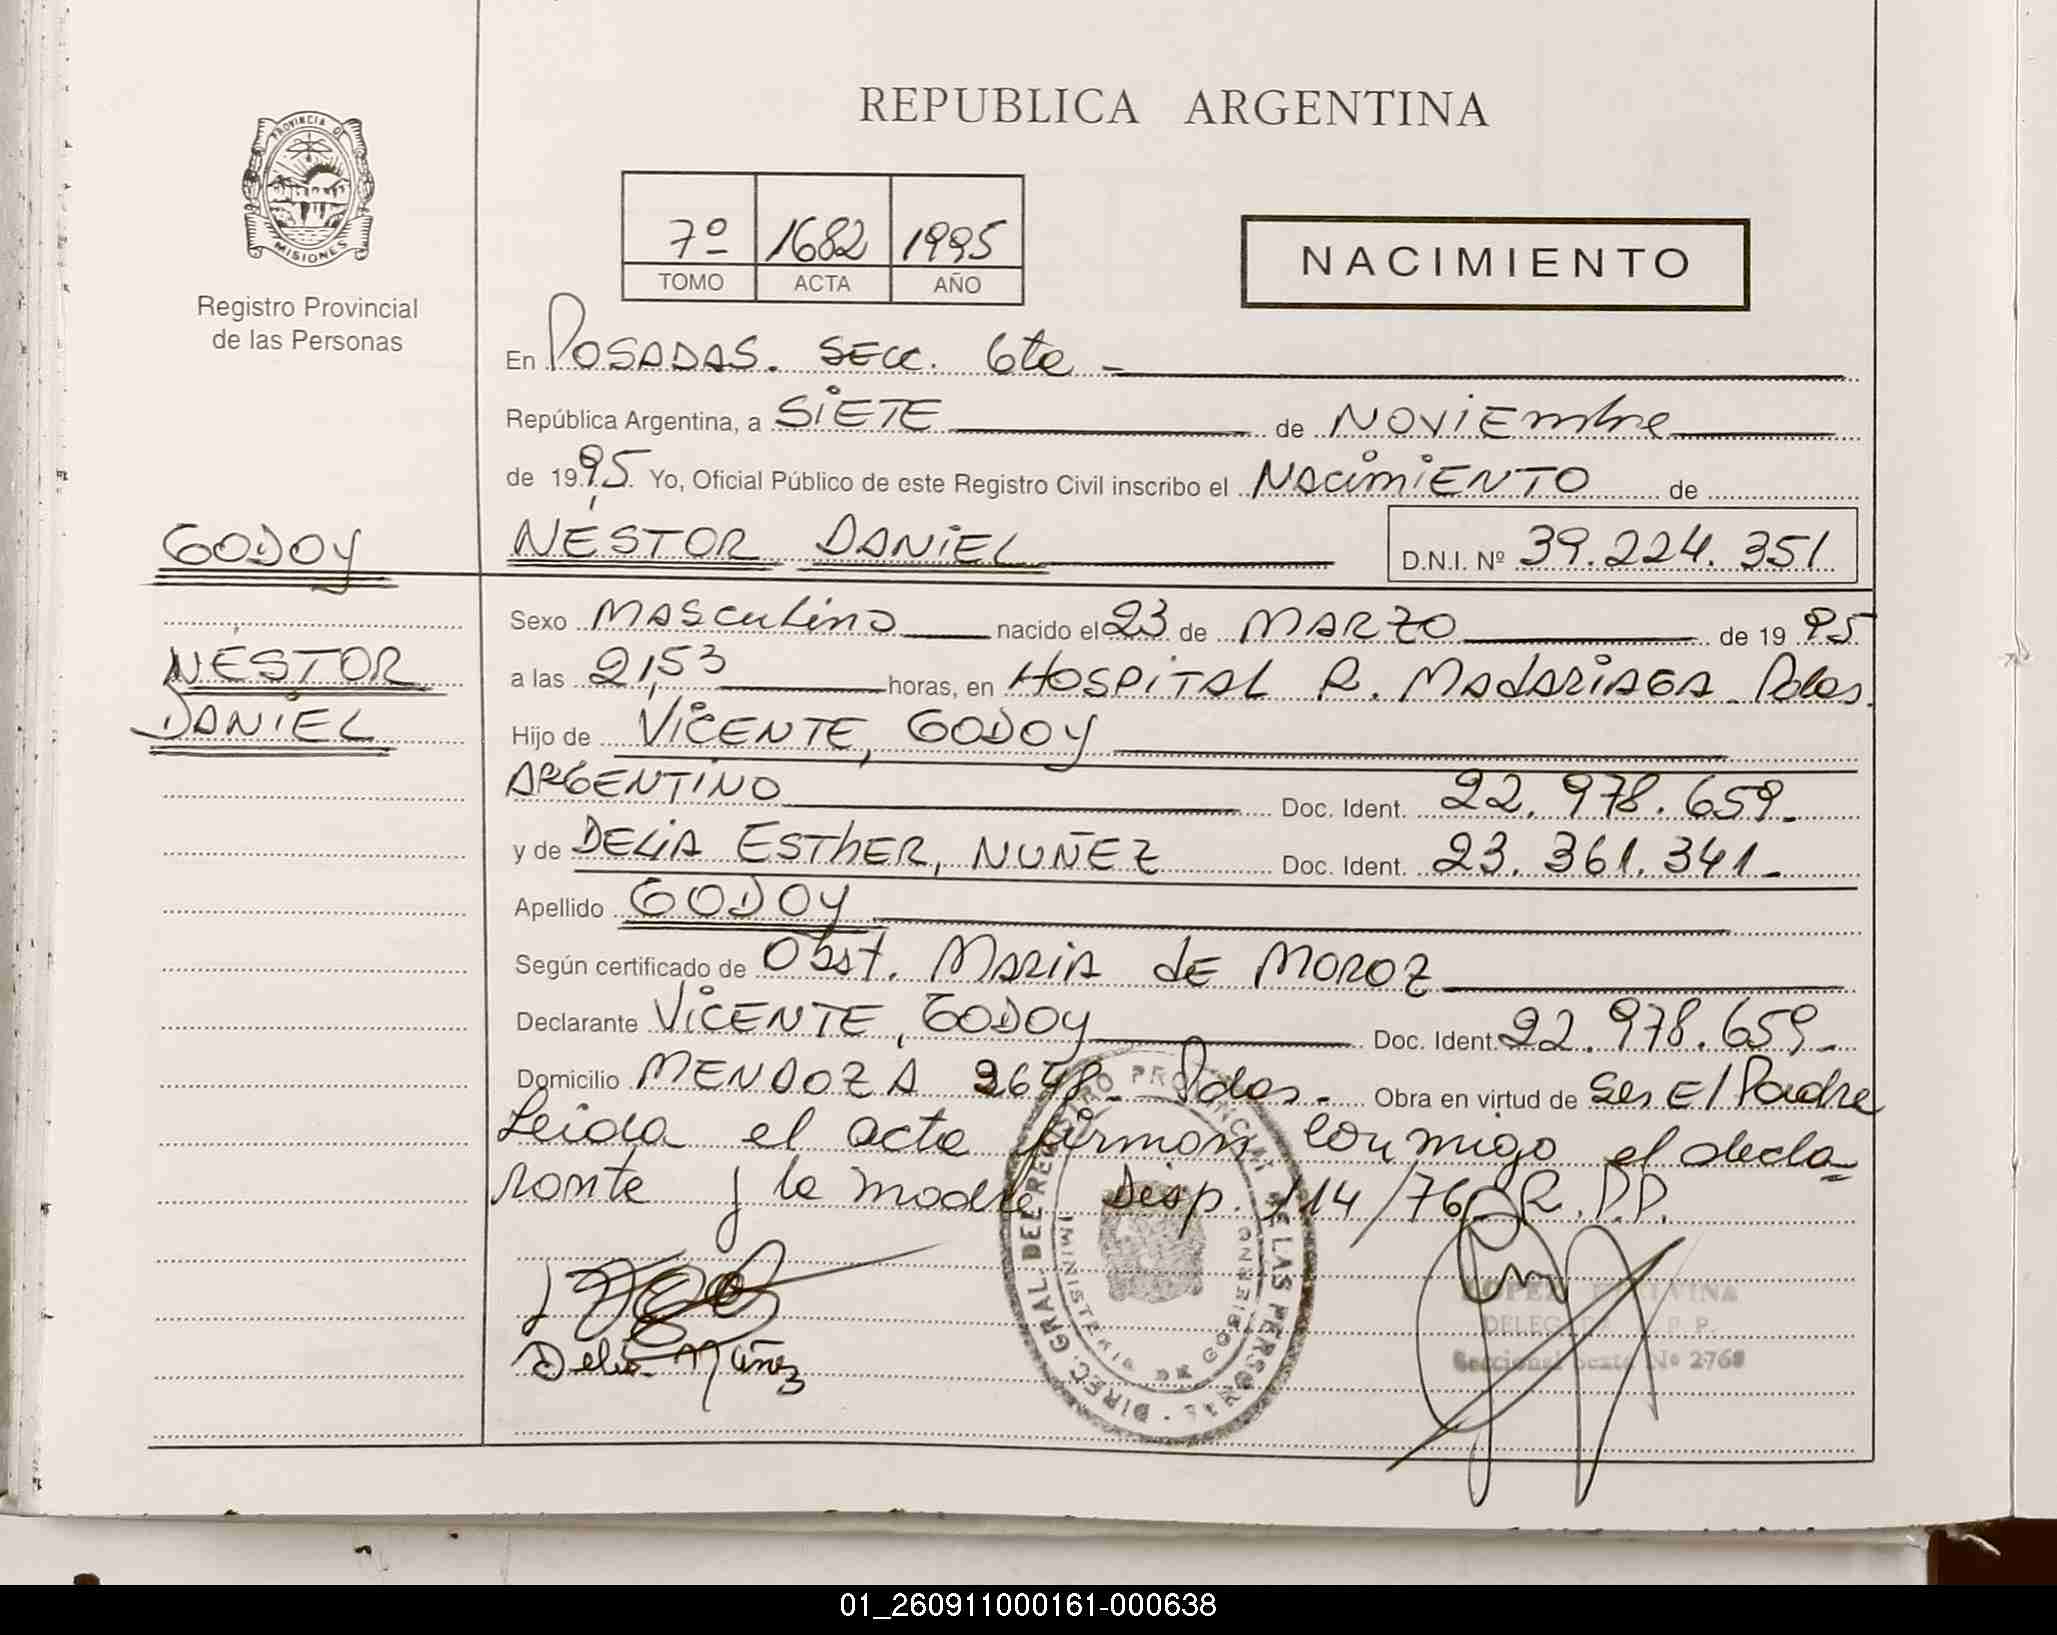 REPUBLICA ARGENTINA
PROVINCIA DE
MISIONES
Registro Provincial
de las Personas
7º 1682 1995
TOMO ACTA AÑO
NACIMIENTO
En POSADAS. SECC. 6ta -
República Argentina, a SIETE de NOVIEmbre
de 1995. Yo, Oficial Público de este Registro Civil inscribo el NAcimiENTO de
GODOY
NÉSTOR DANIEL
D.N.I. Nº 39.224.351
Sexo MAScuLino nacido el 23 de MARZO de 1995
NÉSTOR
DANIEL
a las 21,53 horas, en HOSPITAL R. MADARIAGA Pdas.
Hijo de VICENTE, GODOY
ARGENTINO Doc. Ident. 22.978.659-
y de DELIA ESThER, NUÑEZ Doc. Ident. 23.361.341-
Apellido GODOY
Según certificado de Obst. MARIA dE MOROZ
Declarante VICENTE, GODOY Doc. Ident. 22.978.659-
Domicilio MENDOZA Pdas.- Obra en virtud de ser El Padre
Leida el acta firman conmigo el decla-
rante y la madre Disp. 114/76 D.R.P.P.
Delia Núñez
DIREC. GRAL. DEL REGISTRO PROVINCIAL DE LAS PERSONAS
MINISTERIO DE GOBIERNO
LOPEZ
Seccional Sexta Nº 2768
01_260911000161-000638